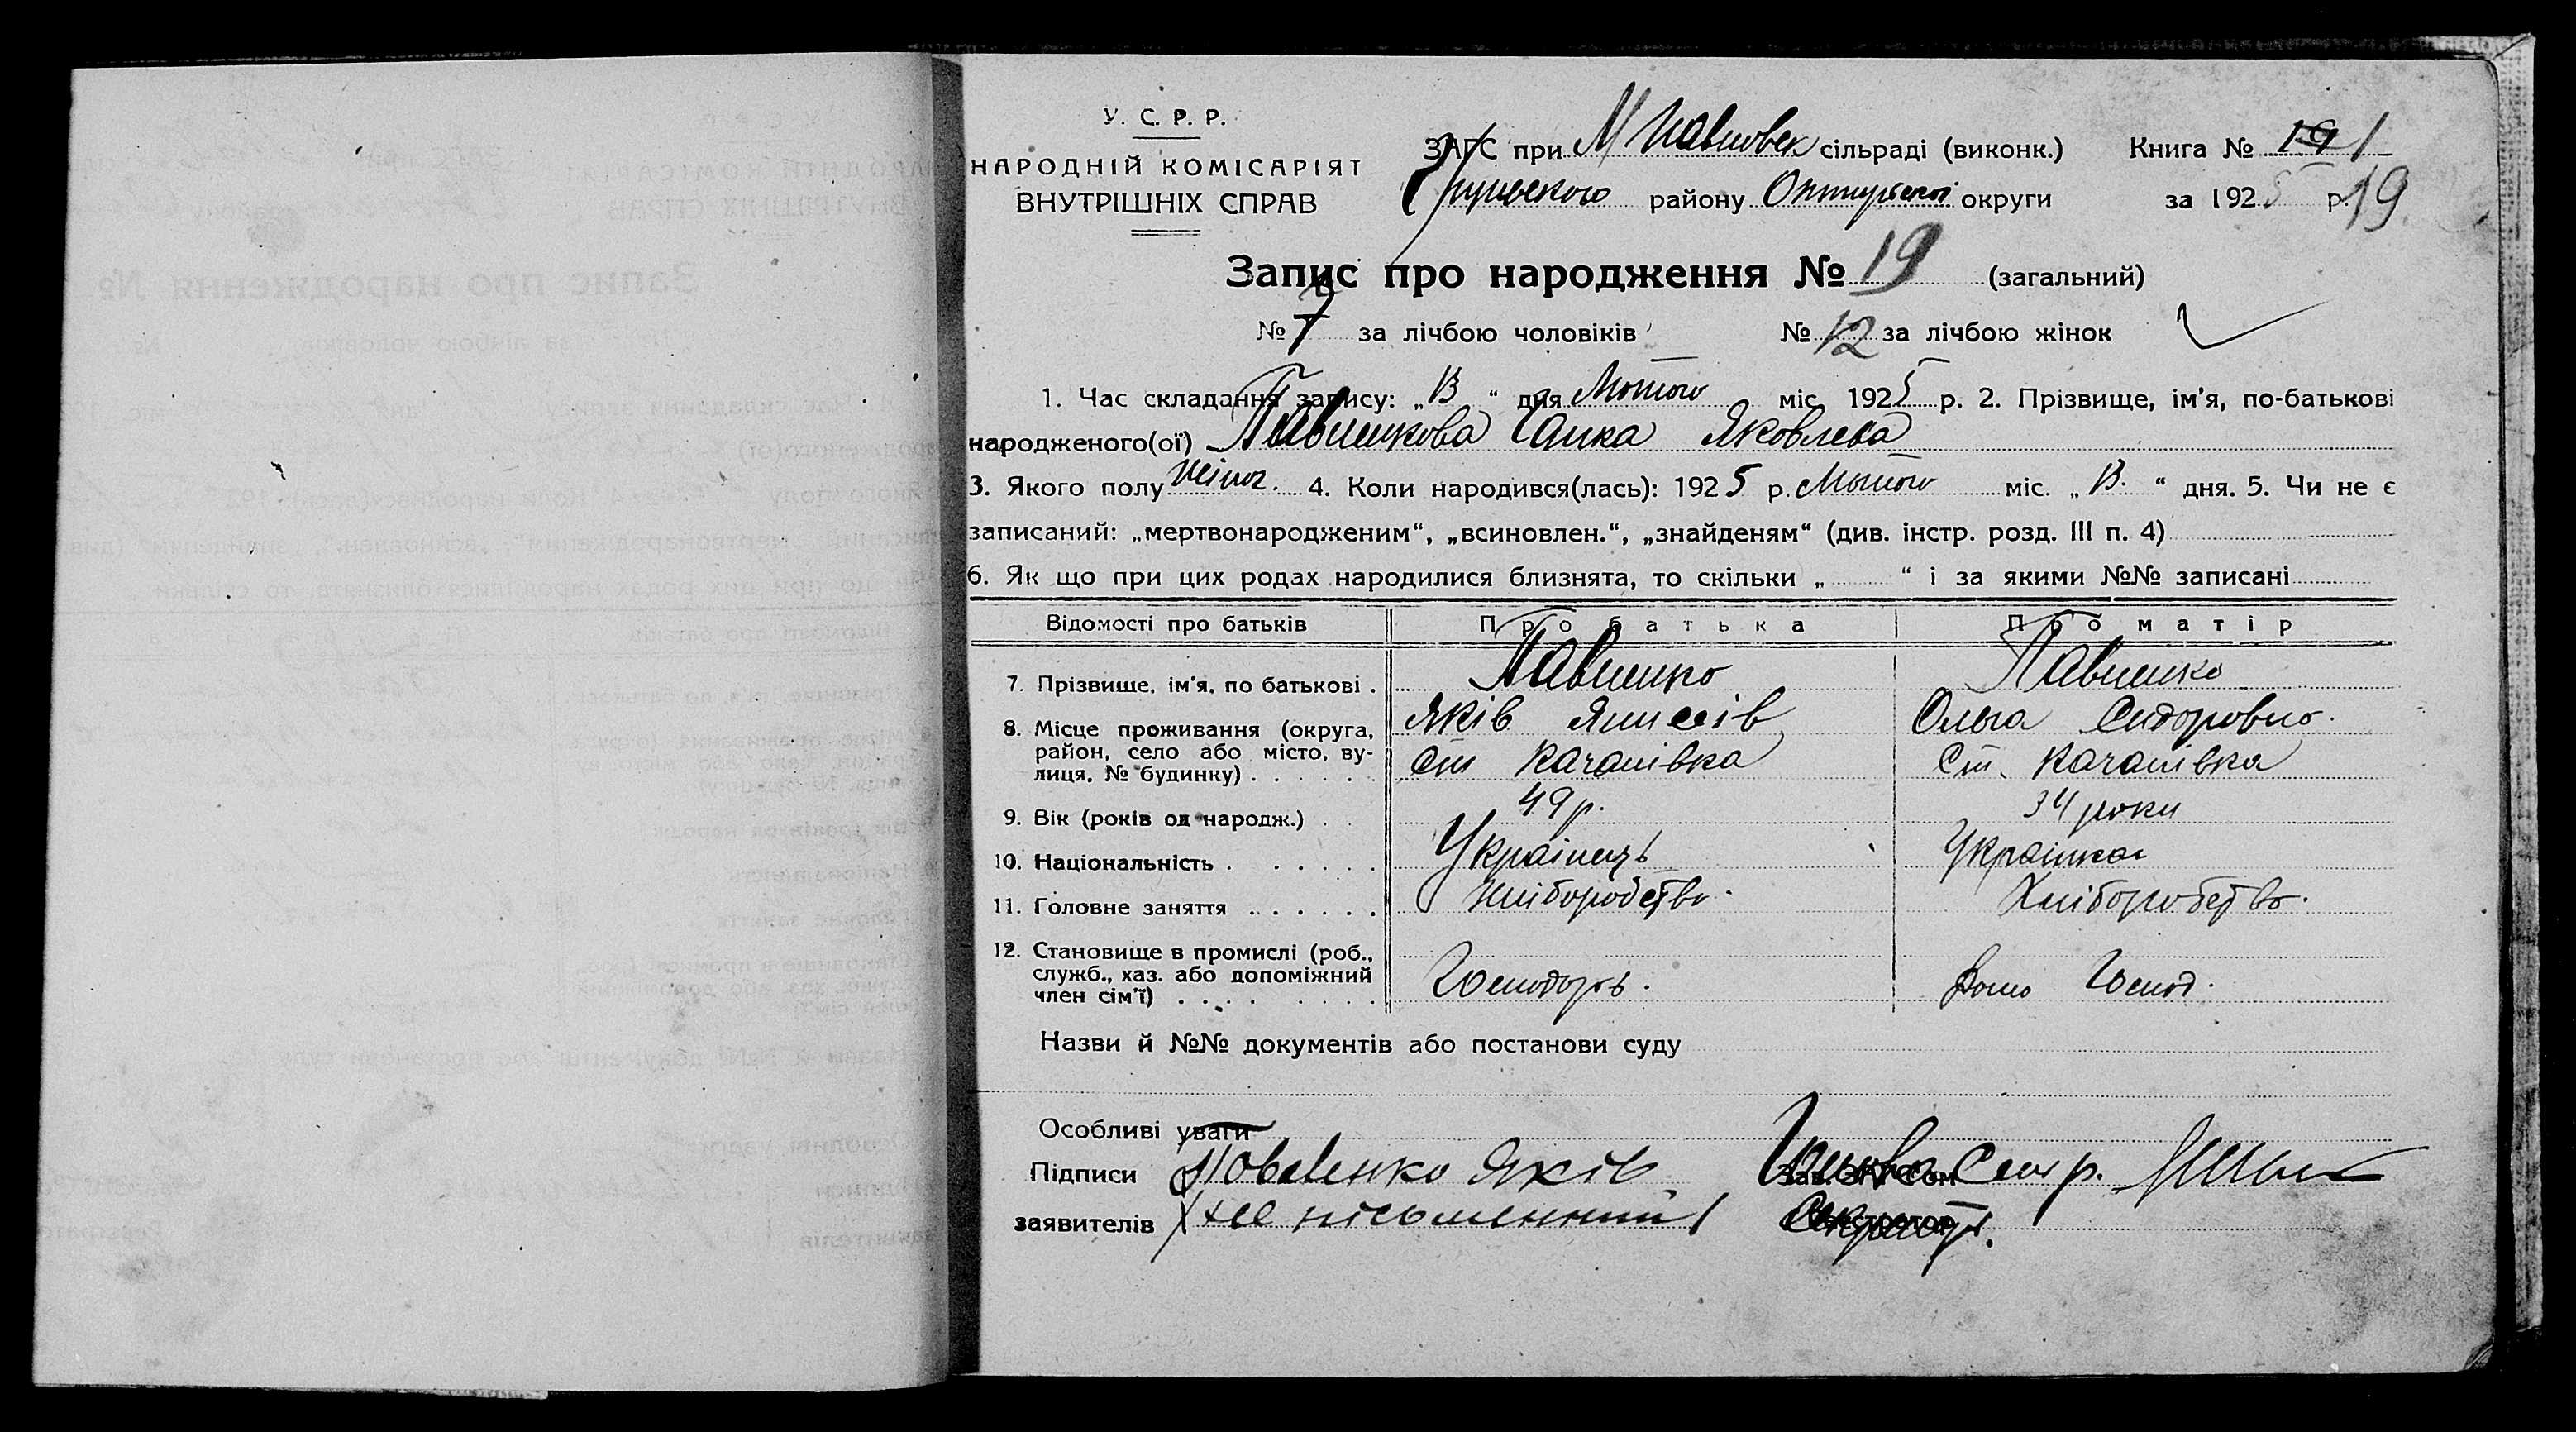 У. С. Р. Р.
НАРОДНІЙ КОМІСАРІЯТ
ВНУТРІШНІХ СПРАВ
ЗАГС при М Павловск сільраді (виконк.) Книга № 1
району округи за 1925 р. 19
Запис про народження № 19 (загальний)
№ 7 за лічбою чоловіків № 12 за лічбою жінок
1. Час складання запису: „13“ дня Лютого міс. 1925 р. 2. Прізвище, ім'я, по-батькові
народженого(ої) Ганка Яковлева
3. Якого полу жіноч. 4. Коли народився(лась): 1925 р. Лютого міс. „13.“ дня. 5. Чи не є
записаний: „мертвонародженим“, „всиновлен.“, „знайденям“ (див. інстр. розд. III п. 4)
6. Як що при цих родах народилися близнята, то скільки „ “ і за якими №№ записані
Відомості про батьків Про батька Про матір
7. Прізвище, ім'я, по батькові . Павленко Павленко
8. Місце проживання (округа, Яків Ольга Сидоровно.
район, село або місто, ву-
лиця, № будинку) . . . . . . ст Качанівка Ст. Качанівка
9. Вік (років од народж.) . . 49 р. 34 роки
10. Національність . . . . . . Українець Українка
11. Головне заняття . . . . . . Хліборобство. Хліборобство.
12. Становище в промислі (роб.,
служб., хаз. або допоміжний
член сім'ї) . . . . . . . . Господарь. Домо Господ.
Назви й №№ документів або постанови суду
Особливі уваги
Підписи Павленко Яків Голова Сельр.
заявителів письменний Секрет.